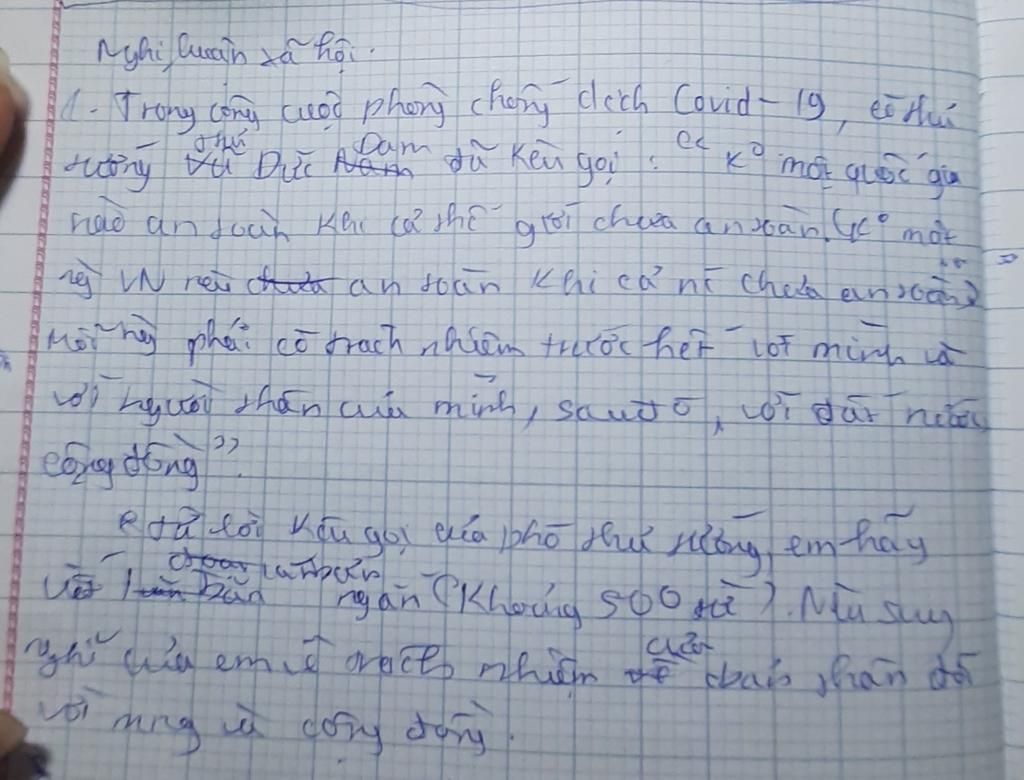 Nghị luận xã hội.
1. Trong công cuộc phòng chống dịch Covid-19, có thủ
tướng Vũ Đức Đam đã kêu gọi: "K° một quốc gia
nào an toàn khi cả thế giới chưa an toàn. K° một
ng VN nếu an toàn khi cả nc chưa an toàn
Mỗi ng phải có trách nhiệm trước hết với mình và
với người thân của mình, sau đó, với đất nước
cộng đồng".
Từ lời kêu gọi của phó thủ tướng, em hãy
viết văn bản ngắn (Khoảng 500 từ). Nêu suy
nghĩ của em về trách nhiệm của bản thân đối
với mng và cộng đồng.